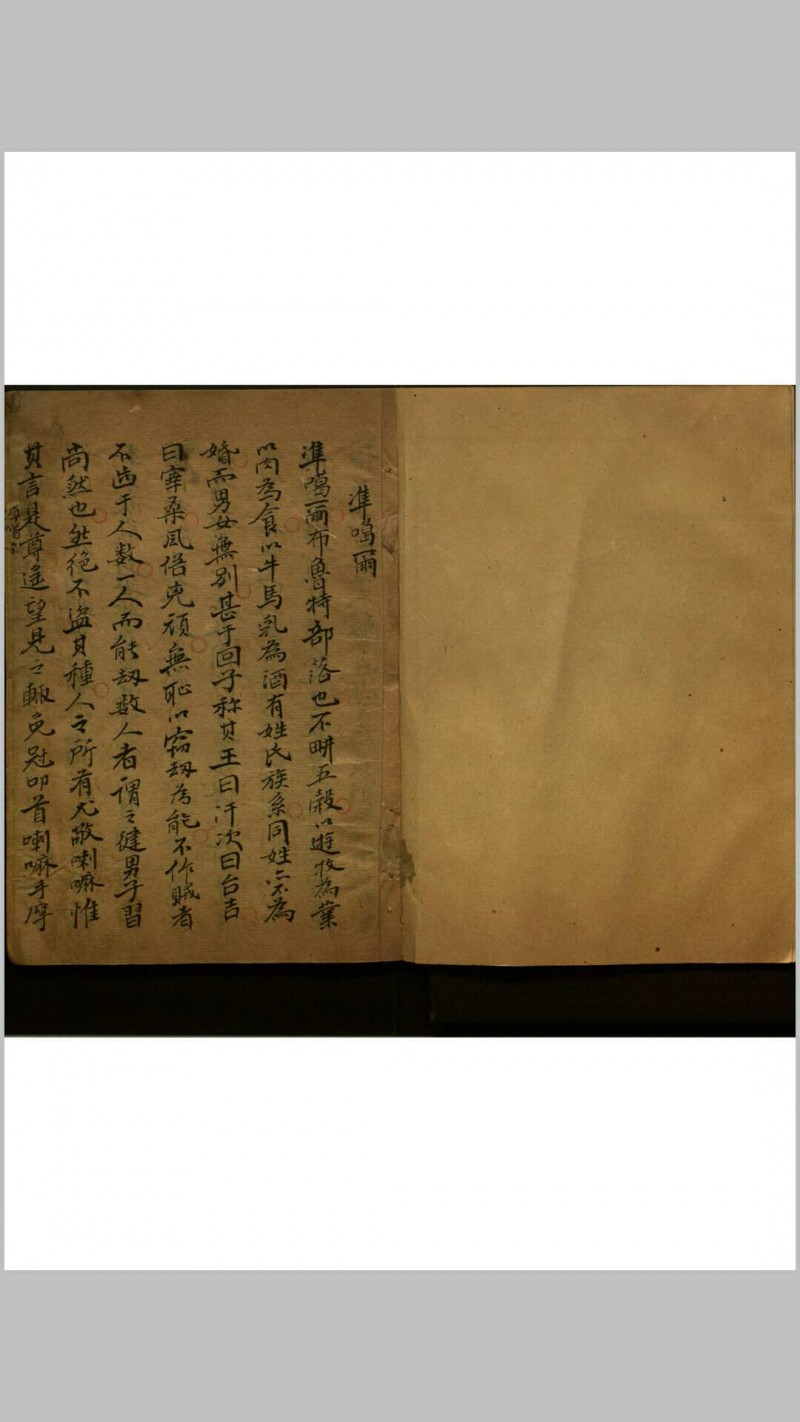 準噶爾
準噶爾布魯特部落也不畊五穀以遊牧為業
以肉為食以牛馬乳為酒有姓氏族系同姓亦不為
婚而男女無別甚于回子称其王曰汗次曰台吉
曰宰桑風俗兇頑無恥以竊刼為能不作賊者
不齿于人数一人而能刼数人者謂之健男子習
尚然也然絕不盜其種人之所有尤敬喇嘛惟
其言是尊遥望見之輙免冠叩首喇嘛手摩